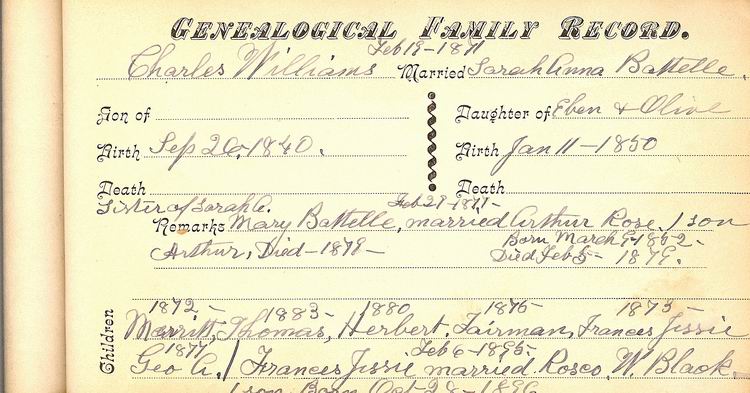 GENEALOGICAL FAMILY RECORD.
Feb 19-1871
Charles Williams Married Sarah Anna Battelle.
Son of Daughter of Eben & Olive
Birth Sep 20, 1840. Birth Jan 11-1850
Death Death
Sister of Sarah A. Feb 29-1871-
Remarks Mary Battelle, married Arthur Rose, 1 son
Born March 9-1852-
Arthur, Died-1878- Died Feb 5- 1879.
1872- 1883- 1880 1875 1873-
Children Merritt, Thomas, Herbert, Fairman, Frances Jessie
1877 Feb 6-1895-
Geo A. / Frances Jessie married Rosco. W. Black-
1 son, Born Oct 28-1896